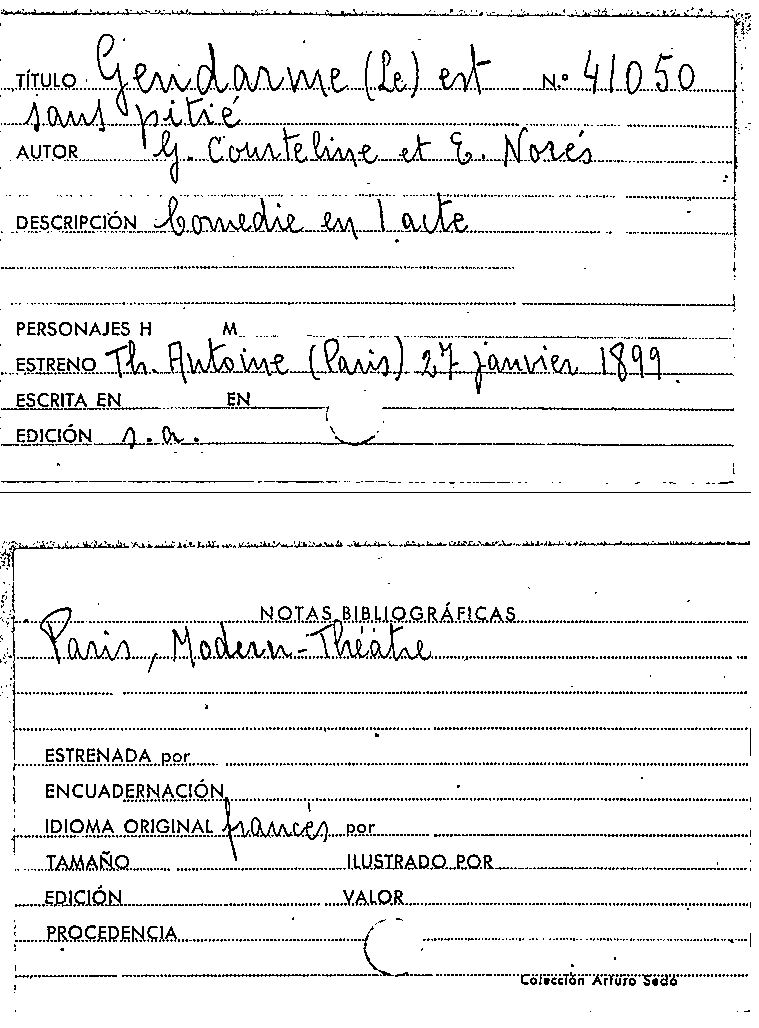 TÍTULO Gendarme (Le) est N.º 41050
sans pitié
AUTOR G. Courteline et E. Norés
DESCRIPCIÓN Comedie en 1 acte
PERSONAJES H M
ESTRENO Th. Antoine (Paris) 27 janvier 1899
ESCRITA EN EN
EDICIÓN s.a.
NOTAS BIBLIOGRÁFICAS
Paris, Modern-Théâtre
ESTRENADA por
ENCUADERNACIÓN
IDIOMA ORIGINAL francés por
TAMAÑO ILUSTRADO POR
EDICIÓN VALOR
PROCEDENCIA
Colección Arturo Sedó